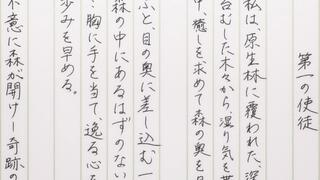 第一の使徒
私は、原生林に覆われた、深
苔むした木々から湿り気を帯
中、癒しを求めて森の奥を目
ふと、目の奥に差し込む一
森の中にあるはずのない
、胸に手を当て、逸る心を
歩みを早める。
不意に森が開け――奇跡の